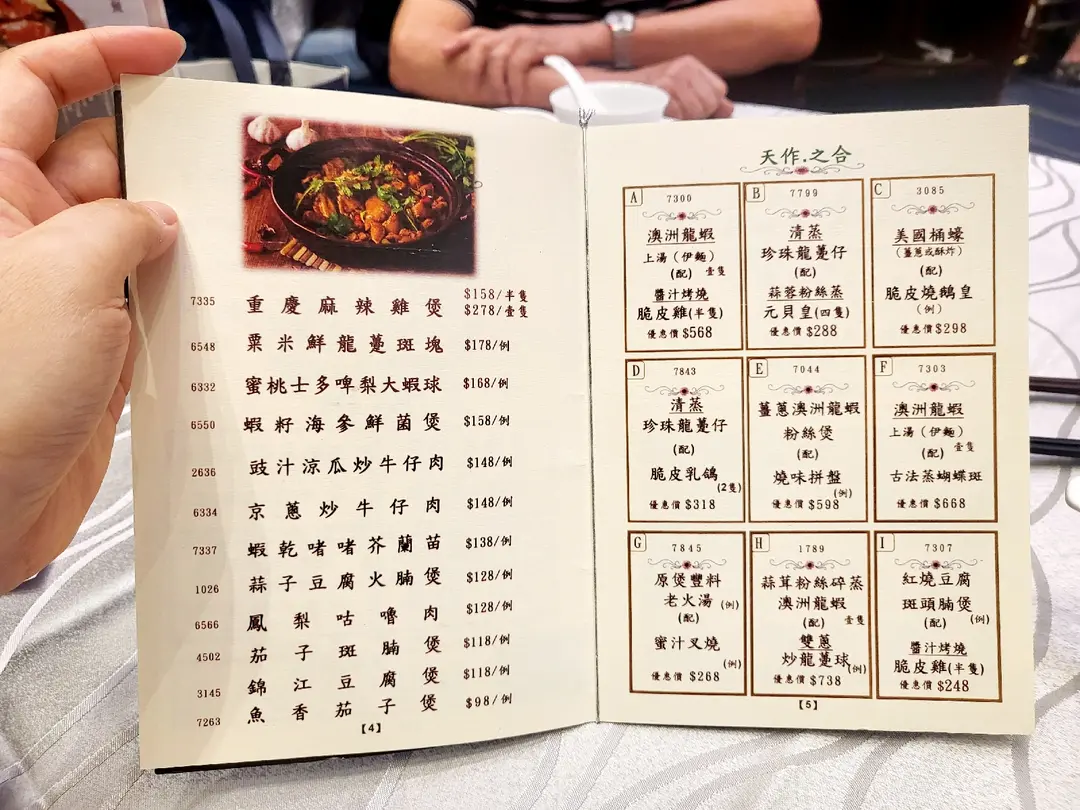 7335 重慶麻辣雞煲 $158/半隻
$278/壹隻
6548 粟米鮮龍躉斑塊 $178/例
6332 蜜桃士多啤梨大蝦球 $168/例
6550 蝦籽海參鮮菌煲 $158/例
2636 豉汁涼瓜炒牛仔肉 $148/例
6334 京蔥炒牛仔肉 $148/例
7337 蝦乾啫啫芥蘭苗 $138/例
1026 蒜子豆腐火腩煲 $128/例
6566 鳳梨咕嚕肉 $128/例
4502 茄子斑腩煲 $118/例
3145 錦江豆腐煲 $118/例
7263 魚香茄子煲 $98/例
【4】
天作.之合
A 7300
澳洲龍蝦
上湯（伊麵）
(配) 壹隻
醬汁烤燒
脆皮雞(半隻)
優惠價 $568
B 7799
清蒸
珍珠龍躉仔
(配)
蒜蓉粉絲蒸
元貝皇(四隻)
優惠價 $288
C 3085
美國桶蠔
(薑蔥或酥炸)
(配)
脆皮燒鵝皇
(例)
優惠價 $298
D 7843
清蒸
珍珠龍躉仔
(配)
脆皮乳鴿
(2隻)
優惠價 $318
E 7044
薑蔥澳洲龍蝦
粉絲煲
(配)
燒味拼盤
(例)
優惠價 $598
F 7303
澳洲龍蝦
上湯（伊麵）
(配) 壹隻
古法蒸蝴蝶斑
優惠價 $668
G 7845
原煲豐料
老火湯 (例)
(配)
蜜汁叉燒
(例)
優惠價 $268
H 1789
蒜茸粉絲碎蒸
澳洲龍蝦
(配) 壹隻
雙蔥
炒龍躉球(例)
優惠價 $738
I 7307
紅燒豆腐
斑頭腩煲
(配) (例)
醬汁烤燒
脆皮雞(半隻)
優惠價 $248
【5】